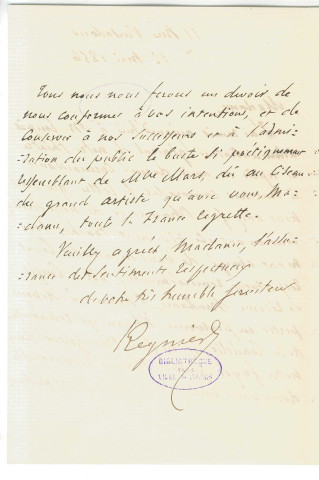 Tous nous nous ferons un devoir de
nous conformer à vos intentions, et de
conserver à nos successeurs et à l'admi-
-ration du public le buste si poétiquement
ressemblant de Mlle Mars, dû au ciseau
du grand artiste qu'avec vous, Ma-
dame, toute la France regrette.
Veuillez agréer, Madame, l'assu-
-rance des sentiments respectueux
de votre très humble serviteur
Regnier
BIBLIOTHEQUE
DE LA
VILLE DE